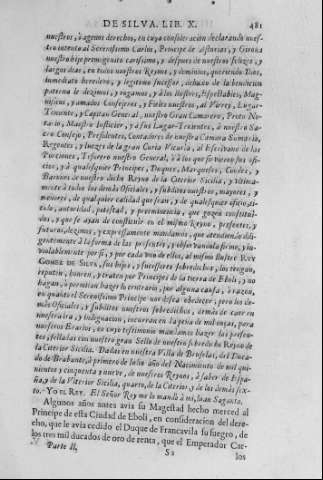 DE SILVA. LIB. X. 481
nuestros, ò agenos derechos, en cuya consideracion declarando nues-
tro intento al Serenissimo Carlos, Principe de Asturias, y Girona
nuestro hijo primogenito carissimo, y despues de nuestros felizes, y
largos dias, en todos nuestros Reynos, y dominios, queriendo Dios,
inmediato heredero, y legitimo successor, debaxo de la bendicion
paterna le dezimos, y rogamos, y à los Ilustres, Espectables, Mag-
nificos, y amados Consejeros, y Fieles nuestros, al Virrey, Lugar-
Teniente, y Capitan General, nuestro Gran Camarero, Proto No-
tario, Maestro Justicier, y à sus Lugar-Tenientes, à nuestro Sa-
cro Consejo, Presidentes, Contadores de nuestra Camara Sumaria,
Regentes, y Iuezes de la gran Curia Vicaria, al Escrivano de las
Porciones, Tesorero nuestro General, ò à los que sirvieren sus ofi-
cios, y à qualesquier Principes, Duques, Marqueses, Condes, y
Barones de nuestro dicho Reyno de la Citerior Sicilia, y ultima-
mente à todos los demàs Oficiales, y subditos nuestros, mayores, y
menores, de qual quier calidad que sean, y de qualesquier oficio, ti-
tulo, autoridad, potestad, y preeminencia, que gozen constitui-
dos, y que se ayan de constituir en el mismo Reyno, presentes, y
futuros, dezimos, y expressamente mandamos, que atendiendo dili-
gentemente à la forma de las presentes, y observandola firme, y in-
violablemente por sì, y por cada vno de ellos, al mismo Ilustre RUY
GOMEZ DE SILVA, sus hijos, y sucessores sobredichos, los tengan,
reputen, honren, y traten por Principes de la tierra de Eboli, y no
hagan, ò permitan hazer lo contrario, por alguna causa, ò razon,
en quanto el Serenissimo Principe nos desea obedecer, pero los de-
màs Oficiales, y subditos nuestros sobredichos, demàs de caer en
nuestra ira, y indignacion, incurran en la pena de mil onzas, para
nuestros Erarios, en cuyo testimonio mandamos hazer las presen-
tes, selladas con nuestro gran Sello de nuestro sobredicho Reyno de
la Citerior Sicilia. Dadas en nuestra Villa de Bruselas, del Duca-
do de Brabante, à primero de Iulio año del Nacimiento de mil qui-
nientos y cinquenta y nueve, de nuestros Reynos, à saber de Espa-
ña, y de la Ulterior Sicilia, quarto, de la Citerior, y de los demàs sex-
to. YO EL REY. El Señor Rey me lo mandò à mi, Iuan Saganta.
Algunos años antes avia su Magestad hecho merced al
Principe de esta Ciudad de Eboli, en consideracion del dere-
cho, que le avia cedido el Duque de Francavila su suegro, de
los tres mil ducados de oro de renta, que el Emperador Car-
Parte II. S2 los